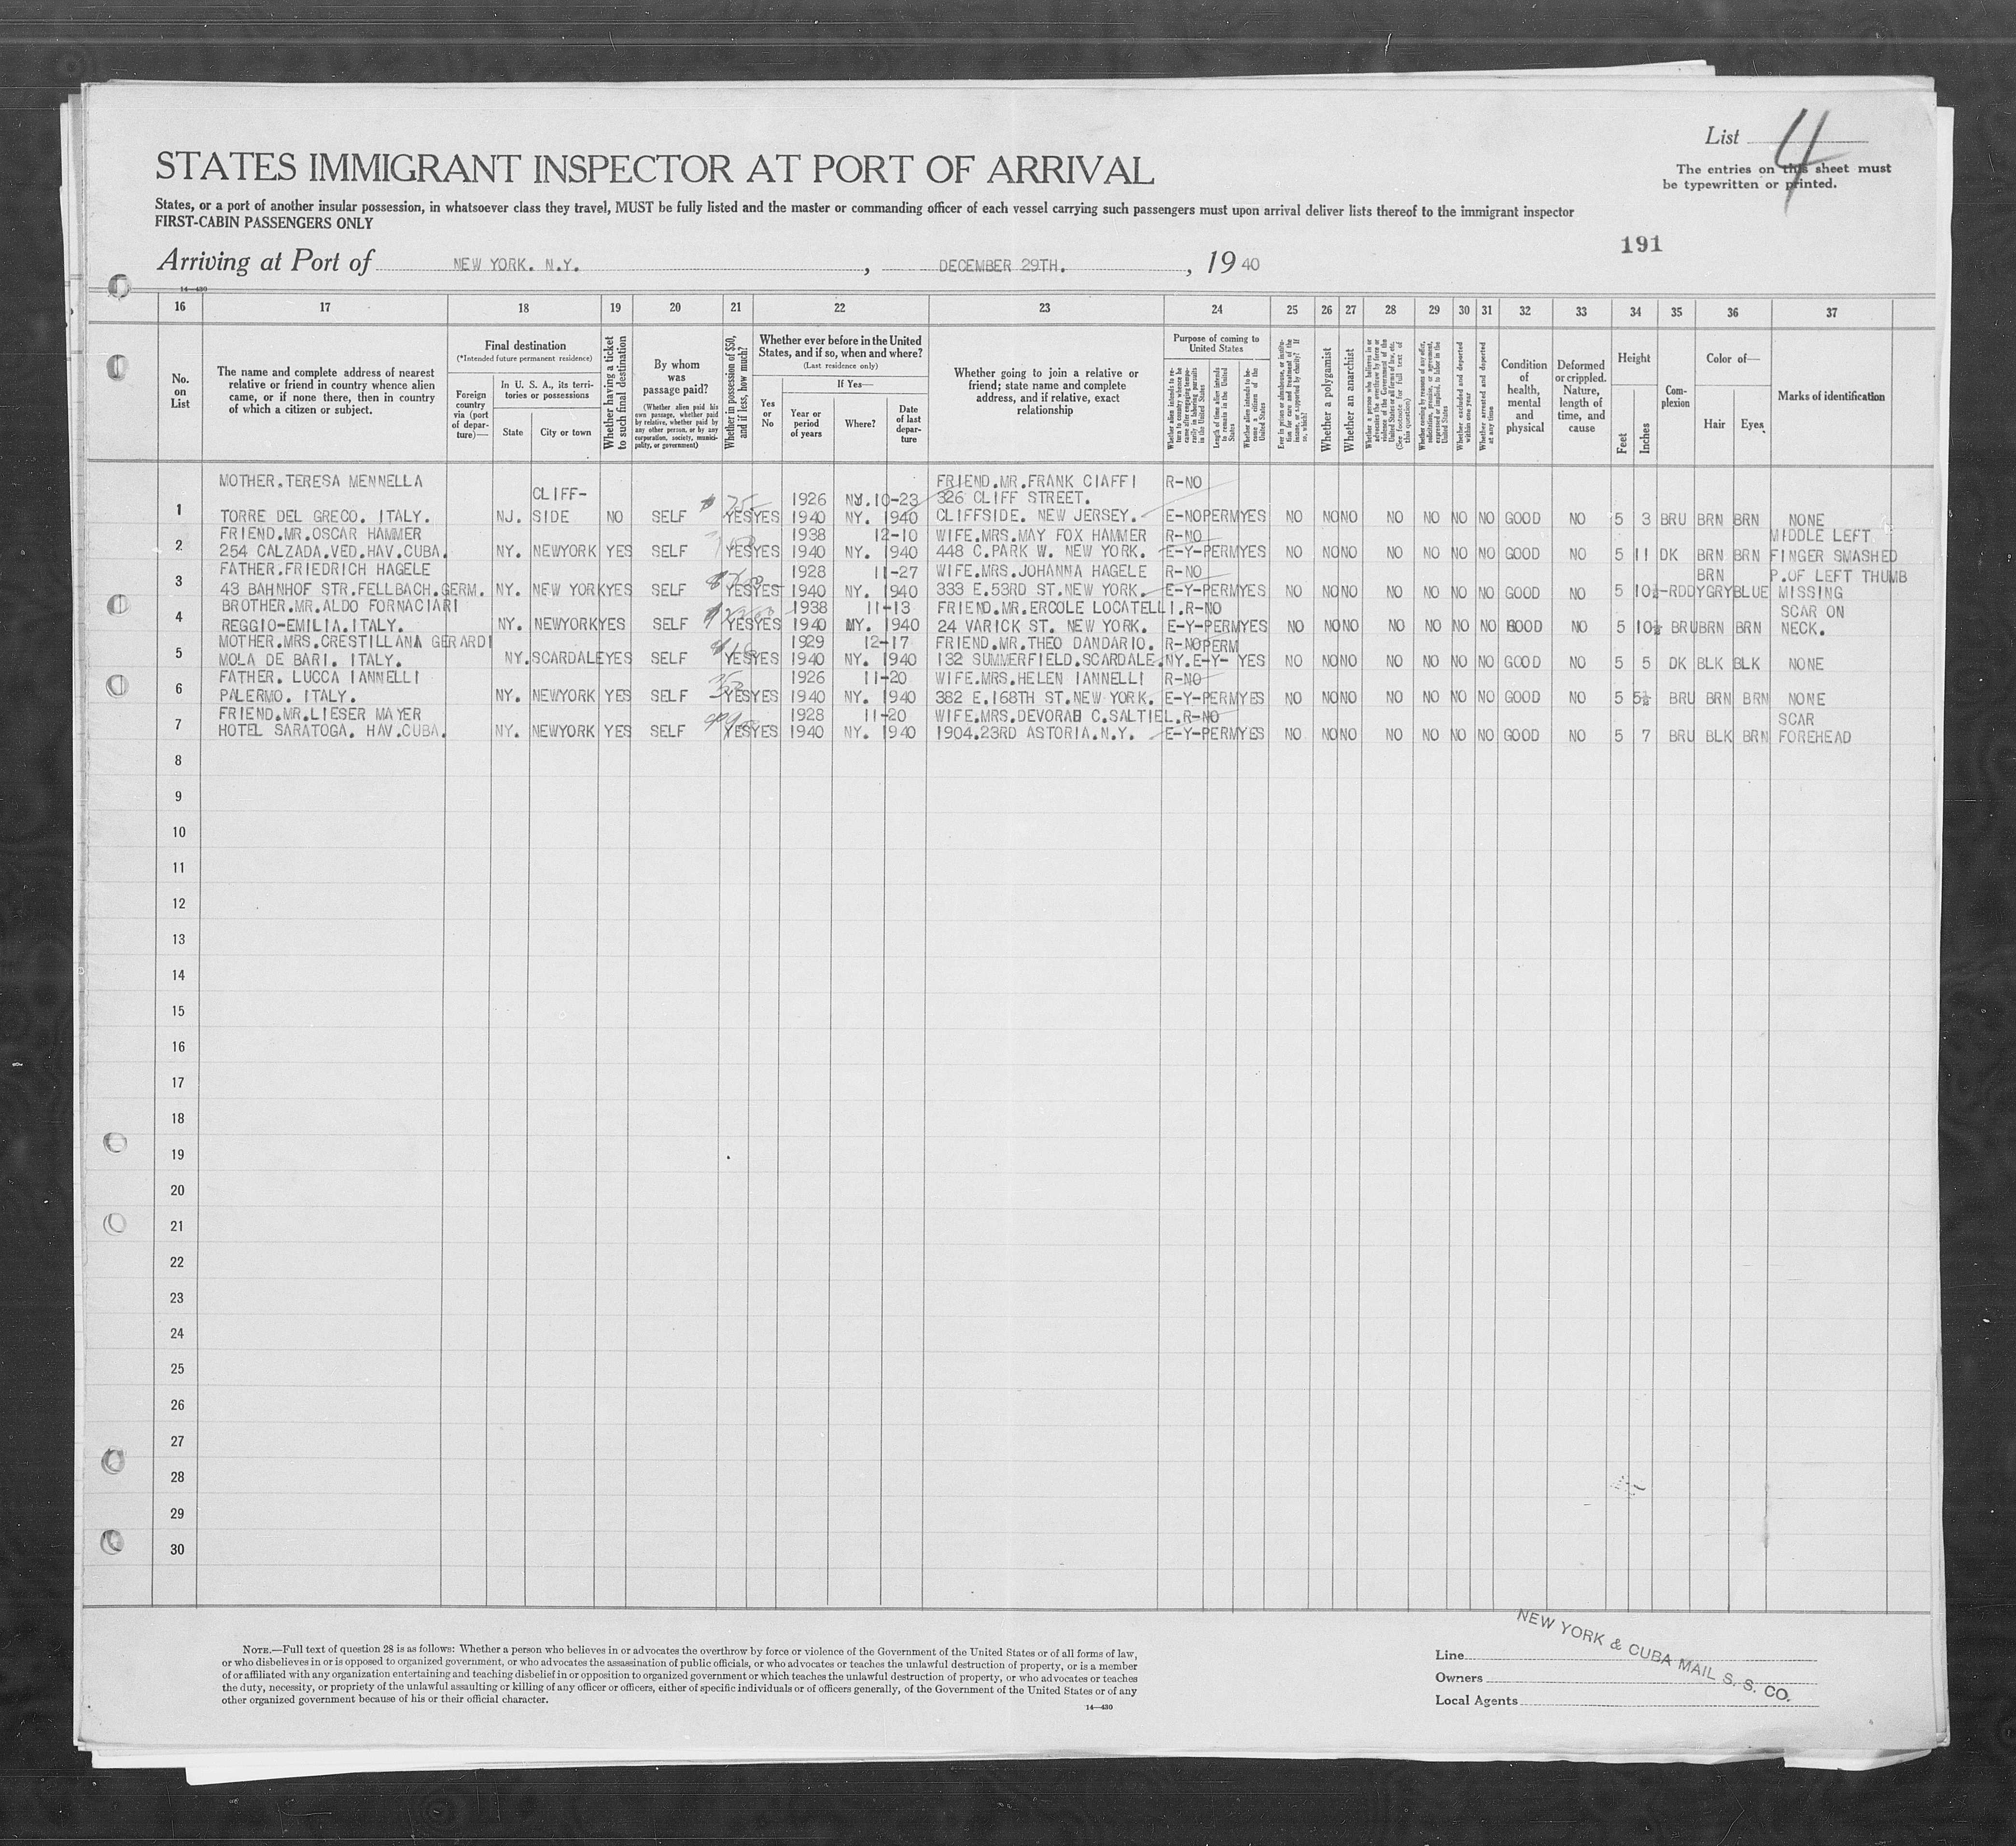 List 4
The entries on this sheet must
be typewritten or printed.
STATES IMMIGRANT INSPECTOR AT PORT OF ARRIVAL
States, or a port of another insular possession, in whatsoever class they travel, MUST be fully listed and the master or commanding officer of each vessel carrying such passengers must upon arrival deliver lists thereof to the immigrant inspector
FIRST-CABIN PASSENGERS ONLY
191
Arriving at Port of NEW YORK. N.Y. , DECEMBER 29TH. , 19 40
14—430
16 17 18 19 20 21 22 23 24 25 26 27 28 29 30 31 32 33 34 35 36 37
No. on List
The name and complete address of nearest
relative or friend in country whence alien
came, or if none there, then in country
of which a citizen or subject.
Final destination
(*Intended future permanent residence)
Foreign country via (port of departure)—
In U. S. A., its territories or possessions
State
City or town
Whether having a ticket to such final destination
By whom was passage paid?
(Whether alien paid his own passage, whether paid by relative, whether paid by any other person, or by any corporation, society, municipality, or government)
Whether in possession of $50, and if less, how much?
Whether ever before in the United States, and if so, when and where?
(Last residence only)
Yes or No
If Yes—
Year or period of years
Where?
Date of last departure
Whether going to join a relative or
friend; state name and complete
address, and if relative, exact
relationship
Purpose of coming to United States
Whether alien intends to return to country whence he came after engaging temporarily in laboring pursuits in the United States
Length of time alien intends to remain in the United States
Whether alien intends to become a citizen of the United States
Ever in prison or almshouse, or institution for care and treatment of the insane, or supported by charity? If so, which?
Whether a polygamist
Whether an anarchist
Whether a person who believes in or advocates the overthrow by force or violence of the Government of the United States or all forms of law, etc. (See footnote for full text of this question)
Whether coming by reasons of any offer, solicitation, promise, or agreement, expressed or implied, to labor in the United States
Whether excluded and deported within one year
Whether arrested and deported at any time
Condition of health, mental and physical
Deformed or crippled. Nature, length of time, and cause
Height
Feet
Inches
Complexion
Color of—
Hair
Eyes
Marks of identification
MOTHER.TERESA MENNELLA FRIEND.MR.FRANK CIAFFI R-NO
CLIFF- 1926 NY.10-23 326 CLIFF STREET.
1 TORRE DEL GRECO. ITALY. NJ. SIDE NO SELF YES YES 1940 NY. 1940 CLIFFSIDE. NEW JERSEY. E-NO PERM YES NO NO NO NO NO NO NO GOOD NO 5 3 BRU BRN BRN NONE
FRIEND.MR.OSCAR HAMMER 1938 12-10 WIFE.MRS.MAY FOX HAMMER R-NO MIDDLE LEFT
2 254 CALZADA.VED.HAV.CUBA. NY. NEWYORK YES SELF YES YES 1940 NY. 1940 448 C.PARK W. NEW YORK. E-Y-PERM YES NO NO NO NO NO NO NO GOOD NO 5 11 DK BRN BRN FINGER SMASHED
FATHER.FRIEDRICH HAGELE 1928 11-27 WIFE.MRS.JOHANNA HAGELE R-NO BRN P.OF LEFT THUMB
3 43 BAHNHOF STR.FELLBACH.GERM. NY. NEW YORK YES SELF YES YES 1940 NY. 1940 333 E.53RD ST.NEW YORK. E-Y-PERM YES NO NO NO NO NO NO NO GOOD NO 5 10½-RDDY GRY BLUE MISSING
BROTHER.MR.ALDO FORNACIARI 1938 11-13 FRIEND.MR.ERCOLE LOCATELLI.R-NO SCAR ON
4 REGGIO-EMILIA.ITALY. NY. NEWYORK YES SELF YES YES 1940 NY. 1940 24 VARICK ST. NEW YORK. E-Y-PERM YES NO NO NO NO NO NO NO GOOD NO 5 10½ BRU BRN BRN NECK.
MOTHER.MRS.CRESTILLANA GERARDI 1929 12-17 FRIEND.MR.THEO DANDARIO. R-NO PERM
5 MOLA DE BARI. ITALY. NY. SCARDALE YES SELF YES YES 1940 NY. 1940 132 SUMMERFIELD.SCARDALE.NY.E-Y- YES NO NO NO NO NO NO NO GOOD NO 5 5 DK BLK BLK NONE
FATHER. LUCCA IANNELLI 1926 11-20 WIFE.MRS.HELEN IANNELLI R-NO
6 PALERMO. ITALY. NY. NEWYORK YES SELF YES YES 1940 NY. 1940 382 E.168TH ST.NEW YORK. E-Y-PERM YES NO NO NO NO NO NO NO GOOD NO 5 5½ BRU BRN BRN NONE
FRIEND.MR.LIESER MAYER 1928 11-20 WIFE.MRS.DEVORAH C.SALTIEL.R-NO SCAR
7 HOTEL SARATOGA. HAV.CUBA. NY. NEWYORK YES SELF YES YES 1940 NY. 1940 1904.23RD ASTORIA.N.Y. E-Y-PERM YES NO NO NO NO NO NO NO GOOD NO 5 7 BRU BLK BRN FOREHEAD
8
9
10
11
12
13
14
15
16
17
18
19
20
21
22
23
24
25
26
27
28
29
30
NOTE.—Full text of question 28 is as follows: Whether a person who believes in or advocates the overthrow by force or violence of the Government of the United States or of all forms of law,
or who disbelieves in or is opposed to organized government, or who advocates the assassination of public officials, or who advocates or teaches the unlawful destruction of property, or is a member
of or affiliated with any organization entertaining and teaching disbelief in or opposition to organized government or which teaches the unlawful destruction of property, or who advocates or teaches
the duty, necessity, or propriety of the unlawful assaulting or killing of any officer or officers, either of specific individuals or of officers generally, of the Government of the United States or of any
other organized government because of his or their official character.
14—430
Line
Owners
Local Agents
NEW YORK & CUBA MAIL S. S. CO.